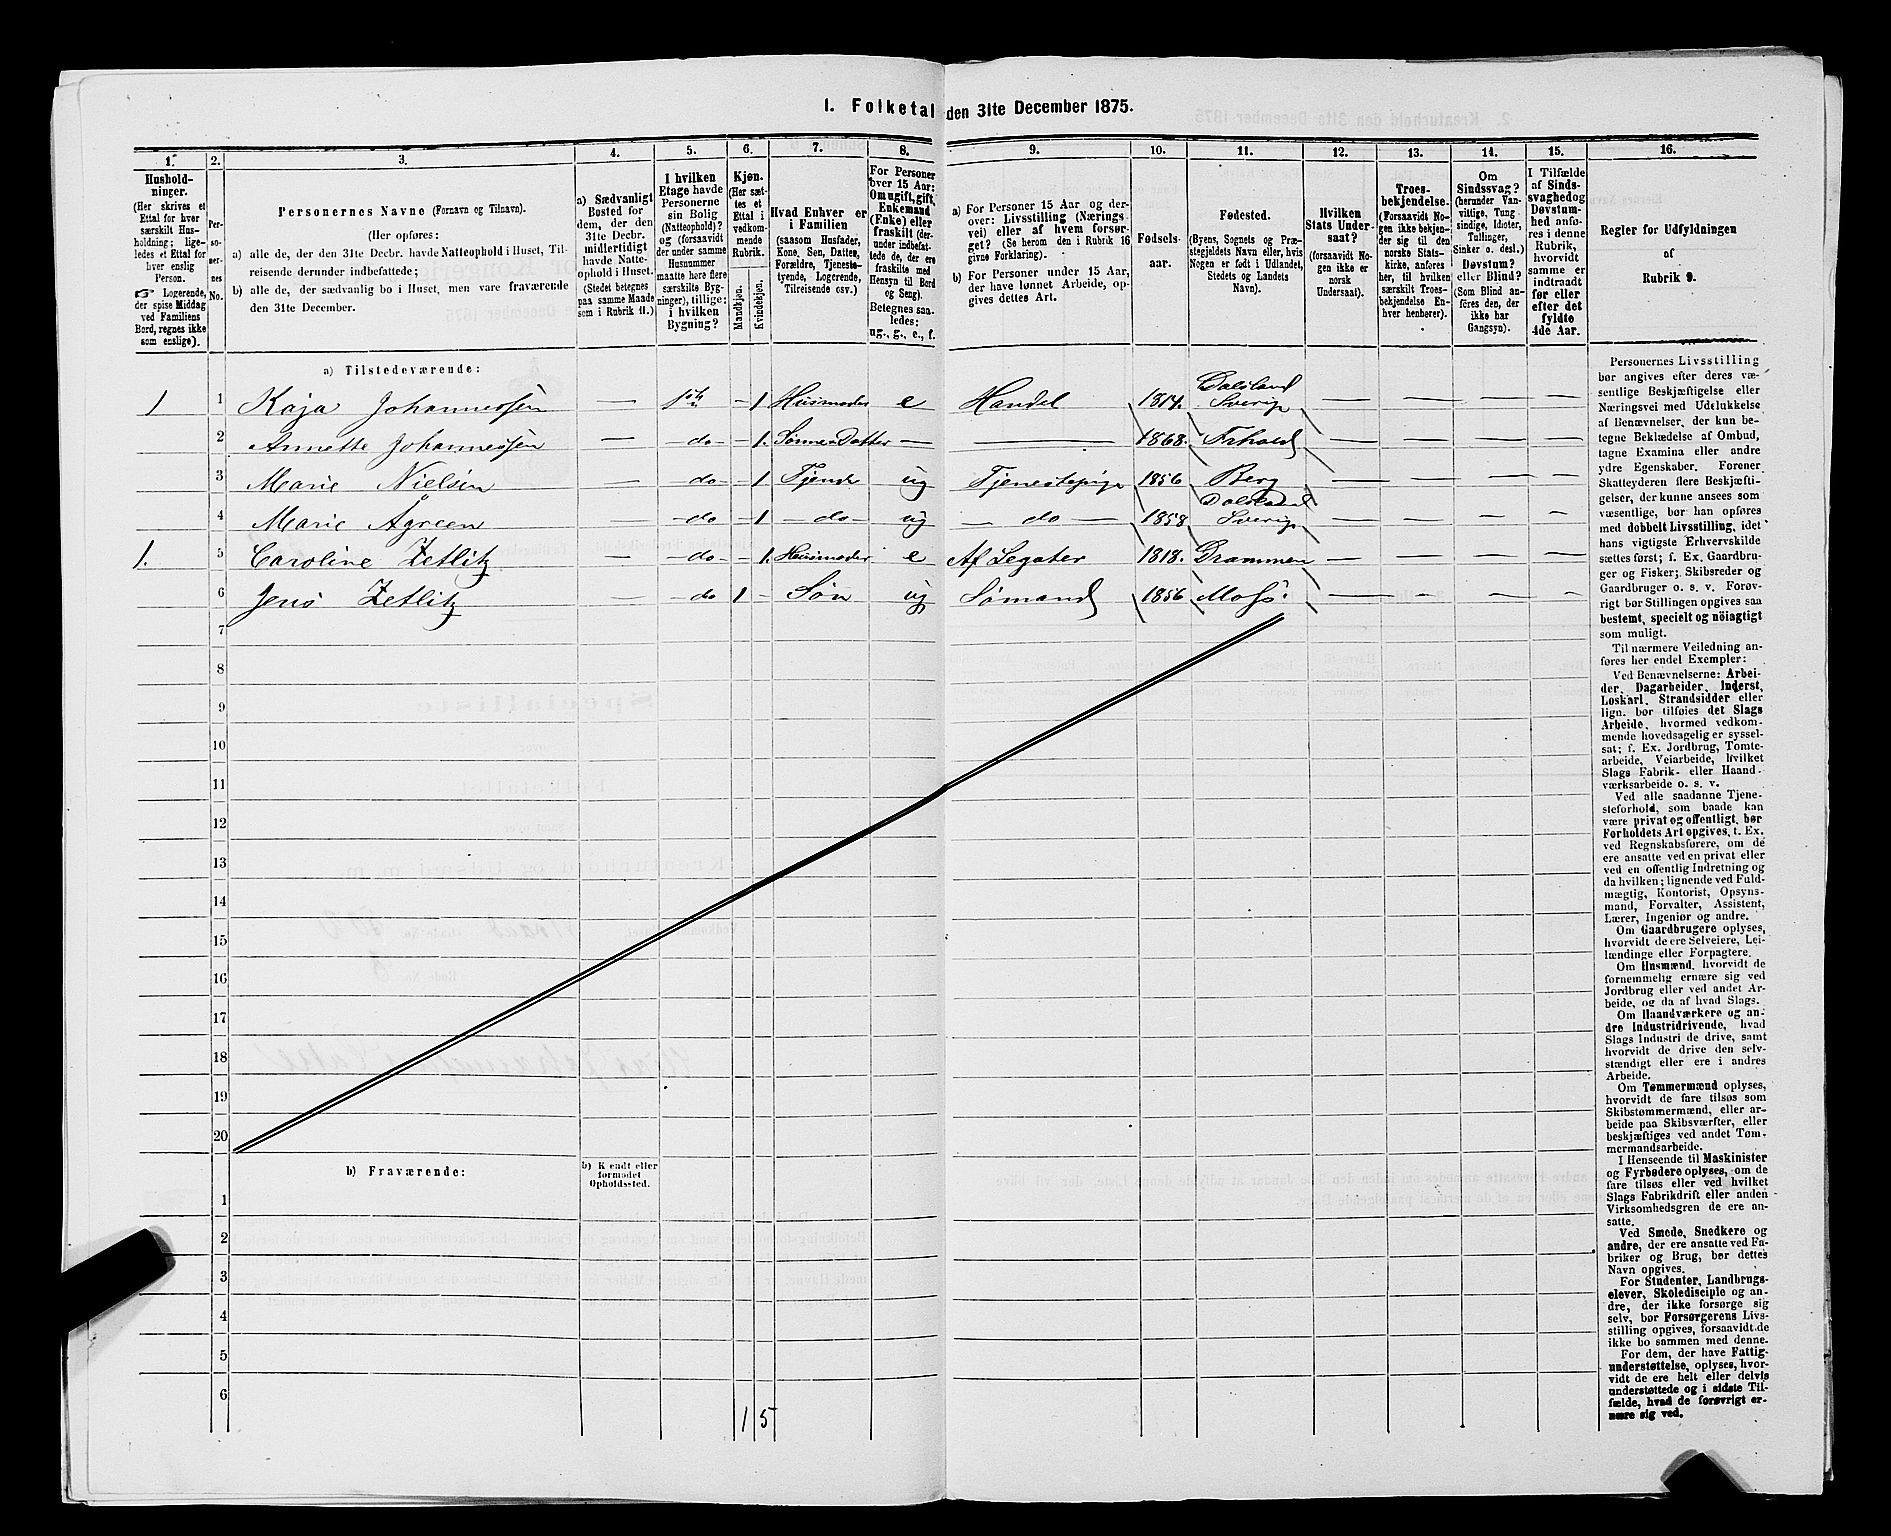 1. Folketal den 31te December 1875.
1. 2. 3. 4. 5. 6. 7. 8. 9. 10. 11. 12. 13. 14. 15. 16.
Hushold-
ninger.
(Her skrives et
Ettal for hver
særskilt Hus-
holdning; lige-
ledes et Ettal for
hver enslig
Person.
☞ Logerende,
der spise Middag
ved Familiens
Bord, regnes ikke
som enslige).
Per-
so-
ner-
nes
No.
Personernes Navne (Fornavn og Tilnavn).
(Her opføres:
a) alle de, der den 31te Decbr. havde Natteophold i Huset, Til-
reisende derunder indbefattede;
b) alle de, der sædvanlig bo i Huset, men vare fraværende
den 31te December.
a) Sædvanligt
Bosted for
dem, der den
31te Decbr.
midlertidigt
havde Natte-
ophold i Huset.
(Stedet betegnes
paa samme Maade
som i Rubrik 11.)
I hvilken
Etage havde
Personerne
sin Bolig
(Natteophold)?
og (forsaavidt
der under samme
Husnummer
maatte høre flere
særskilte Byg-
ninger), tillige:
i hvilken
Bygning?
Kjøn.
(Her sæt-
tes et
Ettal i
vedkom-
mende
Rubrik.
Mandkjøn.
Kvindekjøn.
Hvad Enhver er
i Familien
(saasom Husfader,
Kone, Søn, Datter,
Forældre, Tjeneste-
tyende, Logerende,
Tilreisende osv.)
For Personer
over 15 Aar:
Om ugift, gift,
Enkemand
(Enke) eller
fraskilt (der-
under indbefat-
tede de, der ere
fraskilte med
Hensyn til Bord
og Seng).
Betegnes saa-
ledes:
ug., g., e., f.
a) For Personer 15 Aar og der-
over: Livsstilling (Nærings-
vei) eller af hvem forsør-
get? (Se herom den i Rubrik 16
givne Forklaring).
b) For Personer under 15 Aar,
der have lønnet Arbeide, op-
gives dettes Art.
Fødsels-
aar.
Fødested.
(Byens, Sognets og Præ-
stegjeldets Navn eller, hvis
Nogen er født i Udlandet,
Stedets og Landets
Navn).
Hvilken
Stats Under-
saat?
(forsaavidt No-
gen ikke er
norsk
Undersaat).
Troes-
bekjendelse.
(Forsaavidt No-
gen ikke bekjen-
der sig til den
norske Stats-
kirke, anføres
her, til hvilken
særskilt Troes-
bekjendelse En-
hver henhører).
Om
Sindssvag?
(herunder Van-
vittige, Tung-
sindige, Idioter,
Tullinger,
Sinker o. desl.)
eller Blind?
Døvstum?
(Som Blind an-
føres den, der
ikke har
Gangsyn).
I Tilfælde
af Sinds-
svaghed og
Døvstum-
hed anfø-
res i denne
Rubrik,
hvorvidt
samme er
indtraadt
før eller
efter det
fyldte
4de Aar.
Regler for Udfyldningen
af
Rubrik 9.
a) Tilstedeværende:
1 1 Kaja Johannessen — 1ste — 1 Husmoder e Handel 1814. Dalsland Sverig — — — —
2 Annette Johannessen — do — 1. Sønne-Datter — — 1868. — — — —
3 Marie Nielsen — do — 1 Tjende ug Tjenestepige 1856 Berg — — — —
4 Marie Ågreen — do — 1 — do — ug — do — 1858 Dalsland Sverig — — — —
1. 5 Caroline Zetlitz — do — 1. Husmoder e Af Legater 1818. Drammen — — — —
6 Jens Zetlitz — do 1 — Søn ug Sømand 1856 Moss. — — — —
7
8
9
10
11
12
13
14
15
16
17
18
19
20
b) Fraværende:
b) Kjendt eller
formodet
Opholdssted.
1
2
3
4
5
6
1 5
Personernes Livsstilling
bør angives efter deres væ-
sentlige Beskjæftigelse eller
Næringsvei med Udelukkelse
af Benævnelser, der kun be-
tegne Beklædelse af Ombud,
tagne Examina eller andre
ydre Egenskaber. Forener
Skatteyderen flere Beskjæfti-
gelser, der kunne ansees som
væsentlige, bør han opføres
med dobbelt Livsstilling, idet
hans vigtigste Erhvervskilde
sættes først; f. Ex. Gaardbru-
ger og Fisker; Skibsreder og
Gaardbruger o. s. v. Forøv-
rigt bør Stillingen opgives saa
bestemt, specielt og nöiagtigt
som muligt.
Til nærmere Veiledning an-
føres her endel Exempler:
Ved Benævnelserne: Arbei-
der, Dagarbeider, Inderst,
Løskarl, Strandsidder eller
lign. bør tilføies det Slags
Arbeide, hvormed vedkom-
mende hovedsagelig er syssel-
sat; f. Ex. Jordbrug, Tomte-
arbeide, Veiarbeide, hvilket
Slags Fabrik- eller Haand-
værksarbeide o. s. v.
Ved alle saadanne Tjene-
steforhold, som baade kan
være privat og offentligt, bør
Forholdets Art opgives, t. Ex.
ved Regnskabsførere, om de
ere ansatte ved en privat eller
ved en offentlig Indretning og
da hvilken; lignende ved Fuld-
mægtig, Kontorist, Opsyns-
mand, Forvalter, Assistent,
Lærer, Ingeniør og andre.
Om Gaardbrugere oplyses,
hvorvidt de ere Selveiere, Lei-
lændinge eller Forpagtere.
Om Husmænd, hvorvidt de
fornemmelig ernære sig ved
Jordbrug eller ved andet Ar-
beide, og da af hvad Slags.
Om Haandværkere og an-
dre Industridrivende, hvad
Slags Industri de drive, samt
hvorvidt de drive den selv-
stændigt eller ere i andres
Arbeide.
Om Tømmermænd oplyses,
hvorvidt de fare tilsøs som
Skibstømmermænd, eller ar-
beide paa Skibsværfter, eller
beskjæftiges ved andet Tøm-
mermandsarbeide.
I Henseende til Maskinister
og Fyrbødere oplyses, om de
fare tilsøs eller ved hvilket
Slags Fabrikdrift eller anden
Virksomhedsgren de ere an-
satte.
Ved Smede, Snedkere og
andre, der ere ansatte ved Fa-
briker og Brug, bør dettes
Navn opgives.
For Studenter, Landbrugs-
elever, Skoledisciple og an-
dre, der ikke forsørge sig
selv, bør Forsørgerens Livs-
stilling opgives, forsaavidt de
ikke bo sammen med denne.
For dem, der have Fattig-
understøttelse, oplyses, hvor-
vidt de ere helt eller delvis
understøttede og i sidste Til-
fælde, hvad de forøvrigt er-
nære sig ved.